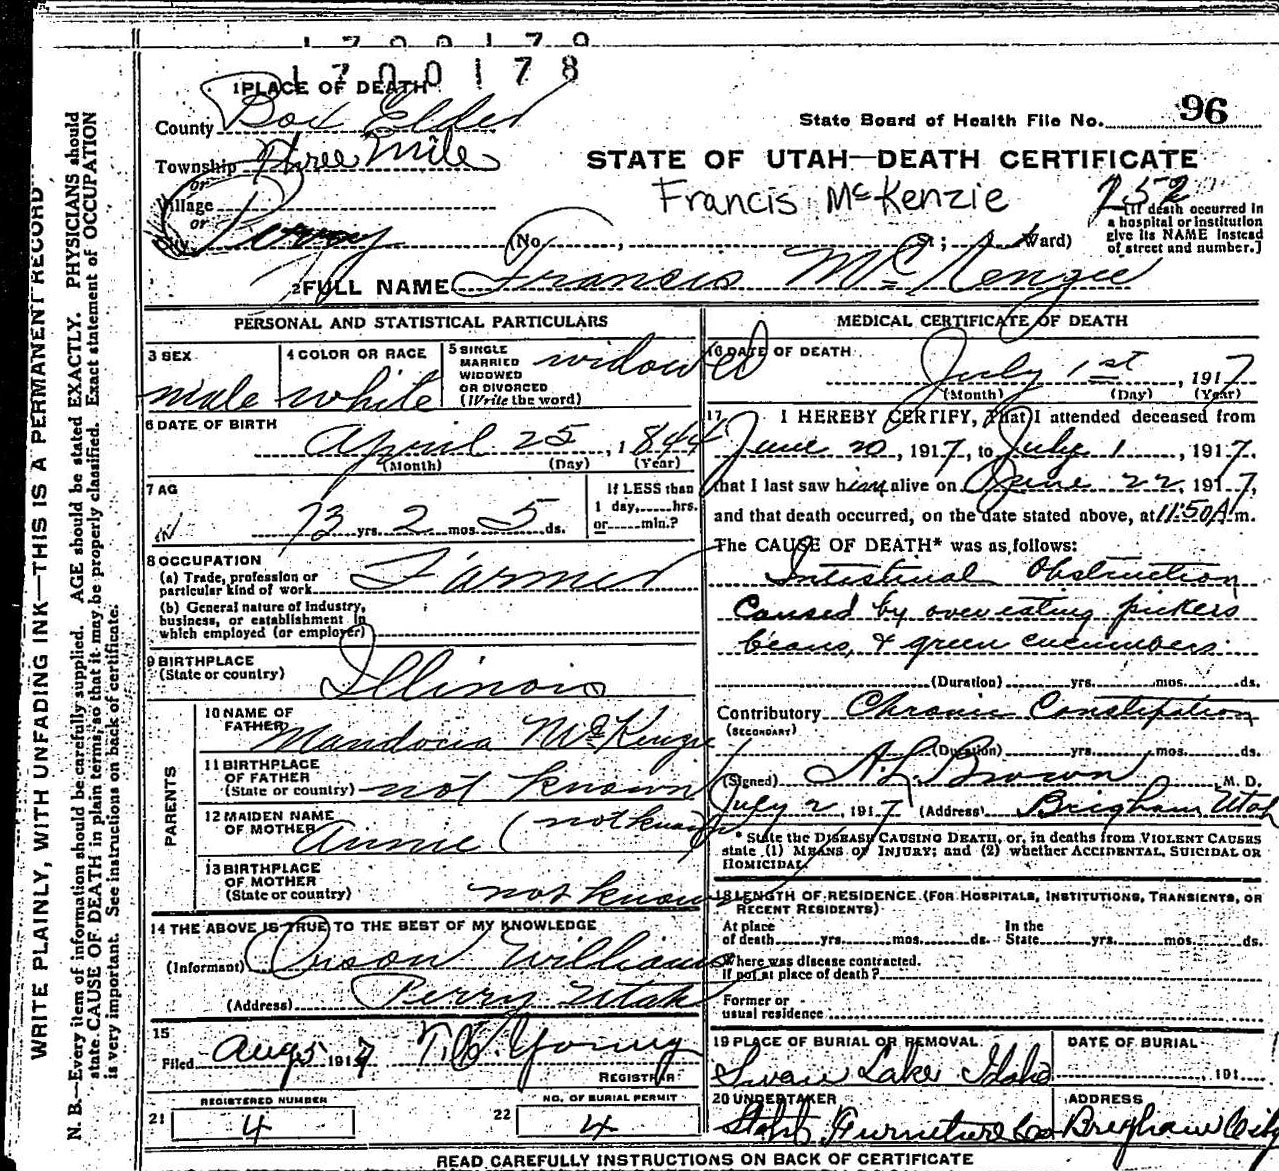 1700179
1700178
1 PLACE OF DEATH
County Box Elder
State Board of Health File No. 96
Township Three Mile
or
STATE OF UTAH—DEATH CERTIFICATE
Village
or
Francis McKenzie
252
[If death occurred in
a hospital or institution
give its NAME instead
of street and number.]
City Perry (No. , St.; Ward)
2 FULL NAME Francis McKenzie
PERSONAL AND STATISTICAL PARTICULARS
3 SEX
male
4 COLOR OR RACE
white
5 SINGLE
MARRIED
WIDOWED
OR DIVORCED
(Write the word)
widowed
6 DATE OF BIRTH
April 25, 1844
(Month) (Day) (Year)
7 AG
73 yrs. 2 mos. 5 ds.
If LESS than
1 day, hrs.
or min.?
8 OCCUPATION
(a) Trade, profession or
particular kind of work Farmer
(b) General nature of Industry,
business, or establishment in
which employed (or employer)
9 BIRTHPLACE
(State or country) Illinois
PARENTS
10 NAME OF
FATHER Mandocia McKenzie
11 BIRTHPLACE
OF FATHER
(State or country) not known
12 MAIDEN NAME
OF MOTHER Annie (not known
13 BIRTHPLACE
OF MOTHER
(State or country) not known
14 THE ABOVE IS TRUE TO THE BEST OF MY KNOWLEDGE
(Informant) Orson Williams
(Address) Perry Utah
15
Filed Aug 5 1917 T.H. Young
REGISTRAR
REGISTERED NUMBER
21 4
NO. OF BURIAL PERMIT
22 4
MEDICAL CERTIFICATE OF DEATH
16 DATE OF DEATH
July 1st, 1917
(Month) (Day) (Year)
17 I HEREBY CERTIFY, That I attended deceased from
June 20, 1917, to July 1, 1917.
that I last saw him alive on June 22, 1917,
and that death occurred, on the date stated above, at 11:50 A.m.
The CAUSE OF DEATH* was as follows:
Intestinal Obstruction
Caused by over eating pickers
beans, & green cucumbers
(Duration) yrs. mos. ds.
Contributory Chronic Constipation
(SECONDARY)
(Duration) yrs. mos. ds.
(Signed) A L Brown M. D.
July 2, 1917 (Address) Brigham, Utah
* State the DISEASE CAUSING DEATH, or, in deaths from VIOLENT CAUSES
state (1) MEANS OF INJURY; and (2) whether ACCIDENTAL, SUICIDAL OR
HOMICIDAL
18 LENGTH OF RESIDENCE (FOR HOSPITALS, INSTITUTIONS, TRANSIENTS, OR
RECENT RESIDENTS)
At place In the
of death yrs. mos. ds. State yrs. mos. ds.
Where was disease contracted.
if not at place of death?
Former or
usual residence
19 PLACE OF BURIAL OR REMOVAL
Swan Lake Idaho
DATE OF BURIAL
, 191
20 UNDERTAKER
Furniture Co
ADDRESS
Brigham City
READ CAREFULLY INSTRUCTIONS ON BACK OF CERTIFICATE
WRITE PLAINLY, WITH UNFADING INK—THIS IS A PERMANENT RECORD
N. B.—Every item of information should be carefully supplied. AGE should be stated EXACTLY. PHYSICIANS should
state CAUSE OF DEATH in plain terms, so that it may be properly classified. Exact statement of OCCUPATION
is very important. See instructions on back of certificate.